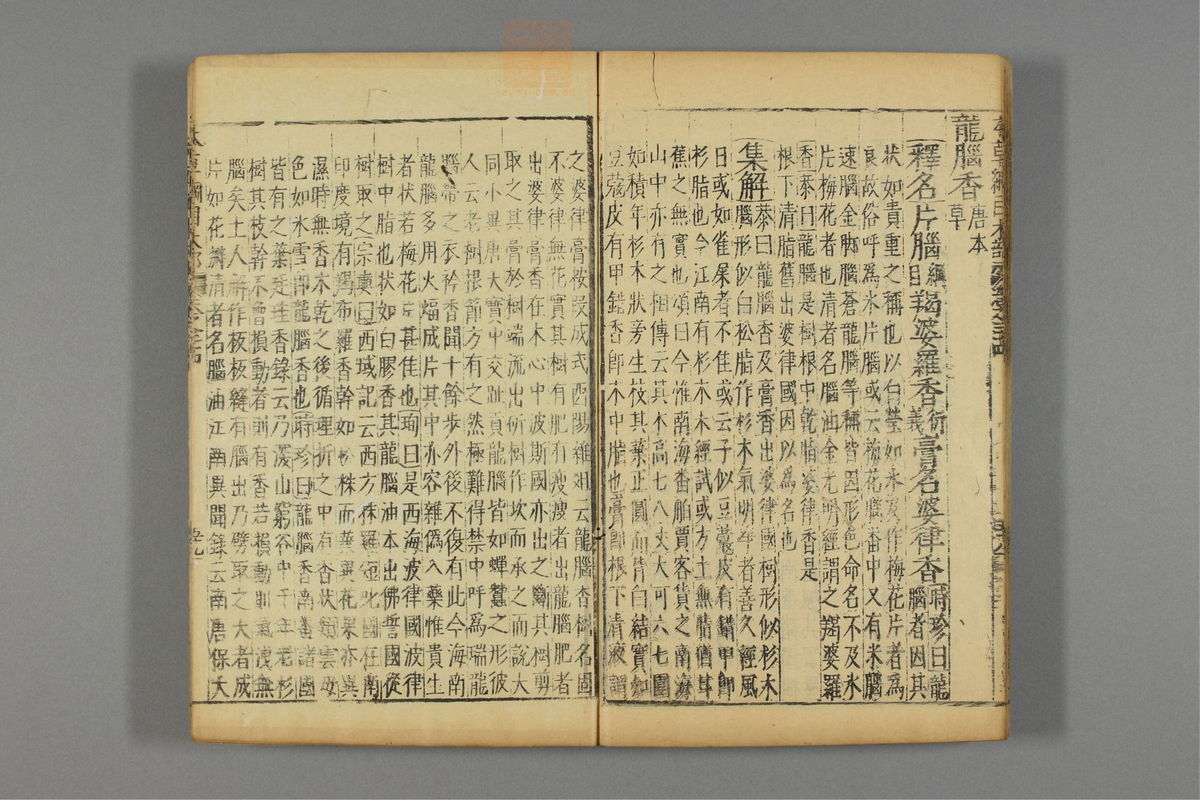 龍腦香唐本草
釋名片腦綱目羯婆羅香衍義膏名婆律香時珍曰龍腦者因其
狀如貴重之稱也以白瑩如冰及作梅花片者爲
良故俗呼爲冰片腦或云梅花腦番中又有米腦
速腦金脚腦蒼龍腦等稱皆因形色命名不及冰
片梅花者也清者名腦油金光明經謂之羯婆羅
香恭曰龍腦是樹根中乾脂婆律香是
根下清脂舊出婆律國因以爲名也
集解恭曰龍腦香及膏香出婆律國樹形似杉木
腦形似白松脂作杉木氣明淨者善久經風
日或如雀屎者不佳或云子似豆蔻皮有錯甲即
杉脂也今江南有杉木未經試或方土無脂猶甘
蕉之無實也頌曰今惟南海番舶賈客貨之南海
山中亦有之相傳云其木高七八丈大可六七圍
如積年杉木狀旁生枝其葉正圓而背白結實如
豆蔻皮有甲錯香即木中脂也膏即根下清液謂
之婆律膏按段成式西陽雜俎云龍腦香樹名固
不婆律無花實其樹有肥有瘦瘦者出龍腦肥者
出婆律膏香在木心中波斯國亦出之斷其樹剪
取之其膏於樹端流出斫樹作坎而承之兩說大
同小異唐天寶中交趾貢龍腦皆如蟬蠶之形彼
人云老樹根節方有之然極難得禁中呼爲瑞龍
腦帶之衣衿香聞十餘步外後不復有此今海南
龍腦多用火煏成片其中亦容雜僞入藥惟貴生
者狀若梅花片甚佳也珣曰是西海波律國波律
樹中脂也狀如白膠香其龍腦油本出佛誓國從
樹取之宗奭曰西域記云西方秣羅矩吒國在南
印度境有羯布羅香幹如松株而葉異花果亦異
濕時無香木乾之後循理折之中有香狀類雲母
色如冰雪即龍腦香也時珍曰龍腦香南番諸國
皆有之葉廷珪香錄云乃深山窮谷中千年老杉
樹其枝幹不曾損動者則有香若損動則氣洩無
腦矣土人解作板板縫有腦出乃劈取之大者成
片如花瓣清者名腦油江南異聞錄云南唐保大